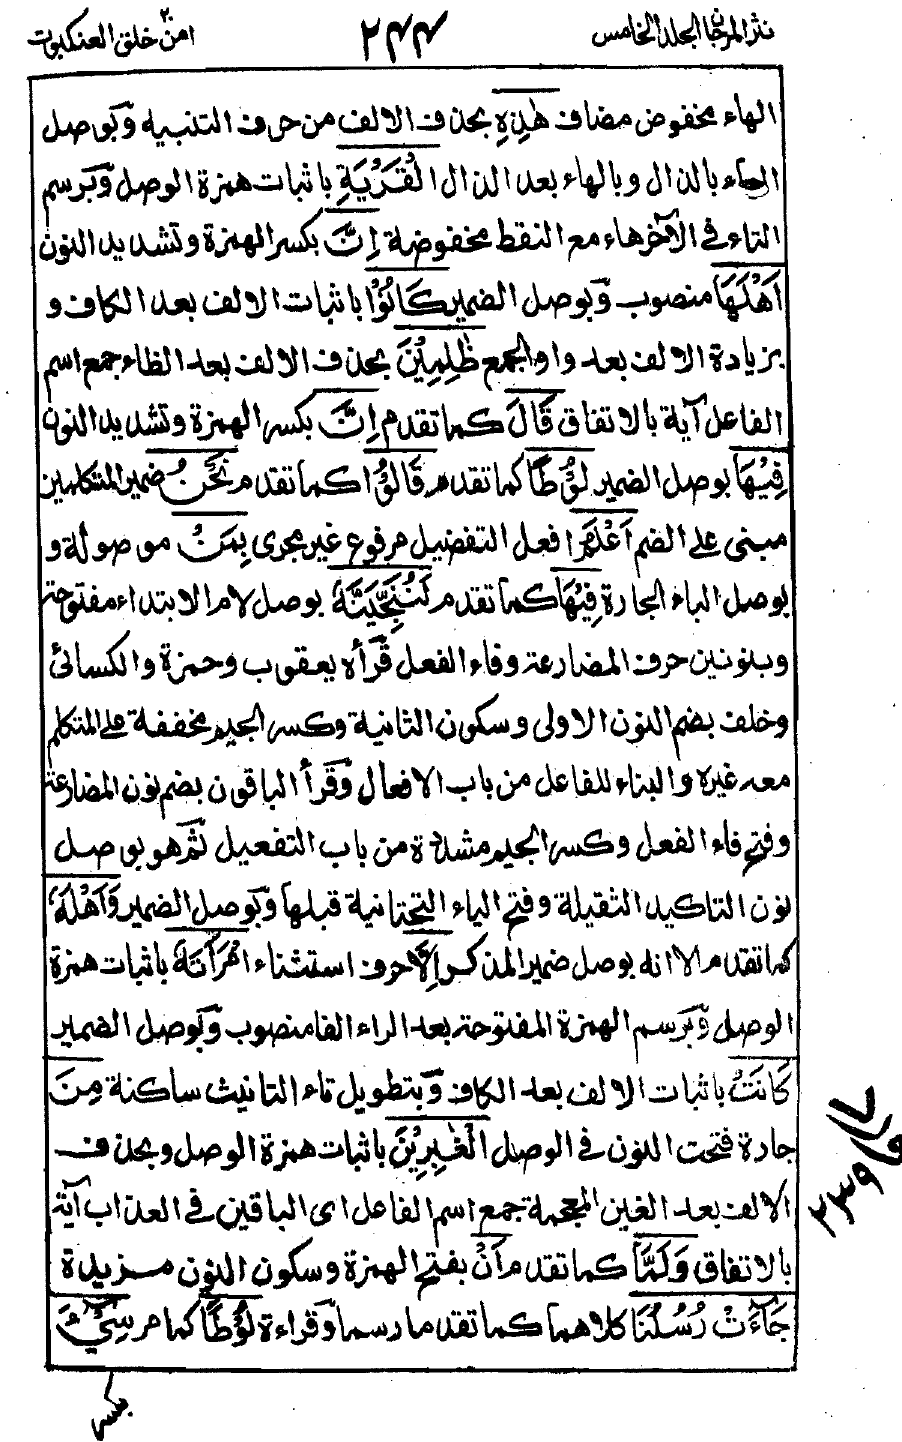 نثر المرجان المجلد الخامس
٢٤٤
امن خلق ٢٠ العنكبوت
الهاء مخفوض مضاف هٰذِهِ بحذف الالف من حرف التنبيه وبوصل
الهاء بالذال وبالهاء بعد الذال الْقَرْيَةِ باثبات همزة الوصل وبرسم
التاء فى الآخر هاء مع النقط مخفوضة اِنَّ بكسر الهمزة وتشديد النون
اَهْلَهَا منصوب وبوصل الضمير كَانُوْا باثبات الالف بعد الكاف و
بزيادة الالف بعد واو الجمع ظٰلِمِيْنَ بحذف الالف بعد الظاء جمع اسم
الفاعل آية بالاتفاق قَالَ كما تقدم اِنَّ بكسر الهمزة وتشديد النون
فِيْهَا بوصل الضمير لُوْطًا كما تقدم قَالُوْا كما تقدم نَحْنُ ضمير المتكلمين
مبنى على الضم اَعْلَمُ افعل التفضيل مرفوع غير مجرى بِمَنْ موصولة و
بوصل الباء الجارة فِيْهَا كما تقدم لَنُنَجِّيَنَّهٗ بوصل لام الابتداء مفتوحة
وبنونين حرف المضارعة وفاء الفعل قرأه يعقوب وحمزة والكسائى
وخلف بضم النون الاولى وسكون الثانية وكسر الجيم مخففة على المتكلم
معه غيره والبناء للفاعل من باب الافعال وقرأ الباقون بضم نون المضارعة
وفتح فاء الفعل وكسر الجيم مشددة من باب التفعيل ثم هو بوصل
نون التاكيد الثقيلة وفتح الياء التحتانية قبلها وبوصل الضمير وَاَهْلَهٗ
كما تقدم الا انه بوصل ضمير المذكر اِلَّا حرف استثناء امْرَاَتَهٗ باثبات همزة
الوصل وبرسم الهمزة المفتوحة بعد الراء الفا منصوب وبوصل الضمير
كَانَتْ باثبات الالف بعد الكاف وبتطويل تاء التانيث ساكنة مِنَ
جارة فتحت النون فى الوصل الْغٰبِرِيْنَ باثبات همزة الوصل وبحذف
الالف بعد الغين المعجمة جمع اسم الفاعل اى الباقين فى العذاب آية
بالاتفاق وَلَمَّا كما تقدم اَنْ بفتح الهمزة وسكون النون مزيدة
جَآءَتْ رُسُلُنَا كلاهما كما تقدما رسما وقراءة لُوْطًا كما مر سِيْٓءَ
بكسر